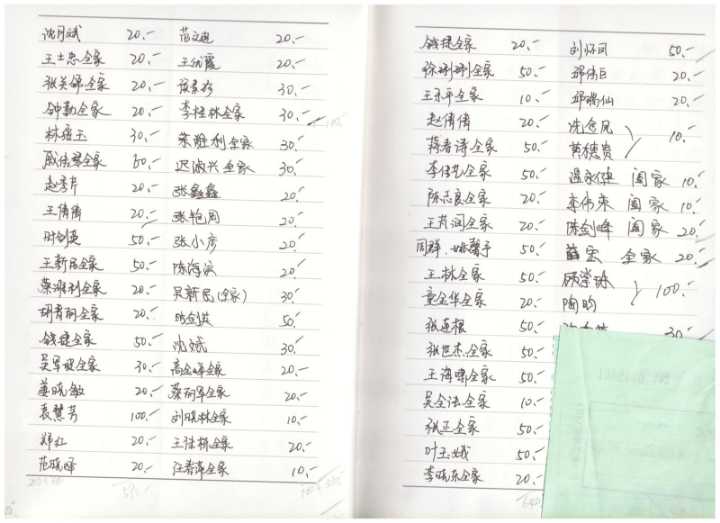 沈月斌 20.-
王士忠全家 20.-
张关锦全家 20.-
钟勤全家 20.-
林瑶玉 30.-
戚伟琴全家 60.-
赵秀芹 20.-
王倩倩 20.-
时剑英 50.-
王新民全家 50.-
蔡胜利全家 20.-
胡青丽全家 20.-
钱捷全家 50.-
吴军妹全家 30.-
姜晓敏 20.-
袁慧芳 100.-
郑红 20.-
范晓峰 20.-
范文进 20.-
王幼霞 20.-
30.-
李桂林全家 30.-
朱胜利全家 30.-
迟淑兴全家 30.-
张鑫鑫 20.-
张艳圆 20.-
张小彦 20.-
陈海滨 20.-
吴新民(全家) 30.-
时剑英 50.-
沈斌 30.-
高金峰全家 20.-
蔡丽军全家 20.-
刘晓林全家 10.-
王佳栋全家 20.-
汪春海全家 10.-
钱捷全家 20.-
徐刚刚全家 50.-
王永平全家 10.-
赵倩倩 20.-
蒋春涛全家 50.-
李伟艺全家 50.-
陈志良全家 20.-
王芹润全家 20.-
周群、姚馨予 50.-
王林全家 50.-
童金华全家 20.-
张莲根 50.-
张世杰全家 50.-
王海啸全家 50.-
吴全法全家 10.-
张正全家 50.-
叶玉娥 50.-
李晓东全家 20.-
刘怀凤 50.-
邵伟巨 20.-
邵瑞仙 20.-
沈念凤
黄穗贵 10.-
温永健 阖家 10.-
李伟来 阖家 10.-
陈剑峰 阖家 20.-
薛宏 全家 20.-
顾棠珍
陶昀 100.-
30.-